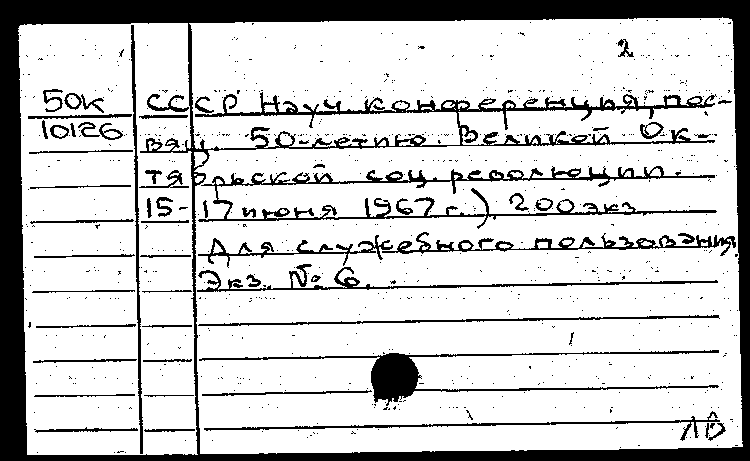 2
50к СССР Науч конференция, пос-
10126 вящ. 50-летию. Великой Ок-
тябрьской соц. революции.
15-17 июня 1967 г.) 200 экз.
Для служебного пользования
Экз. № 6.